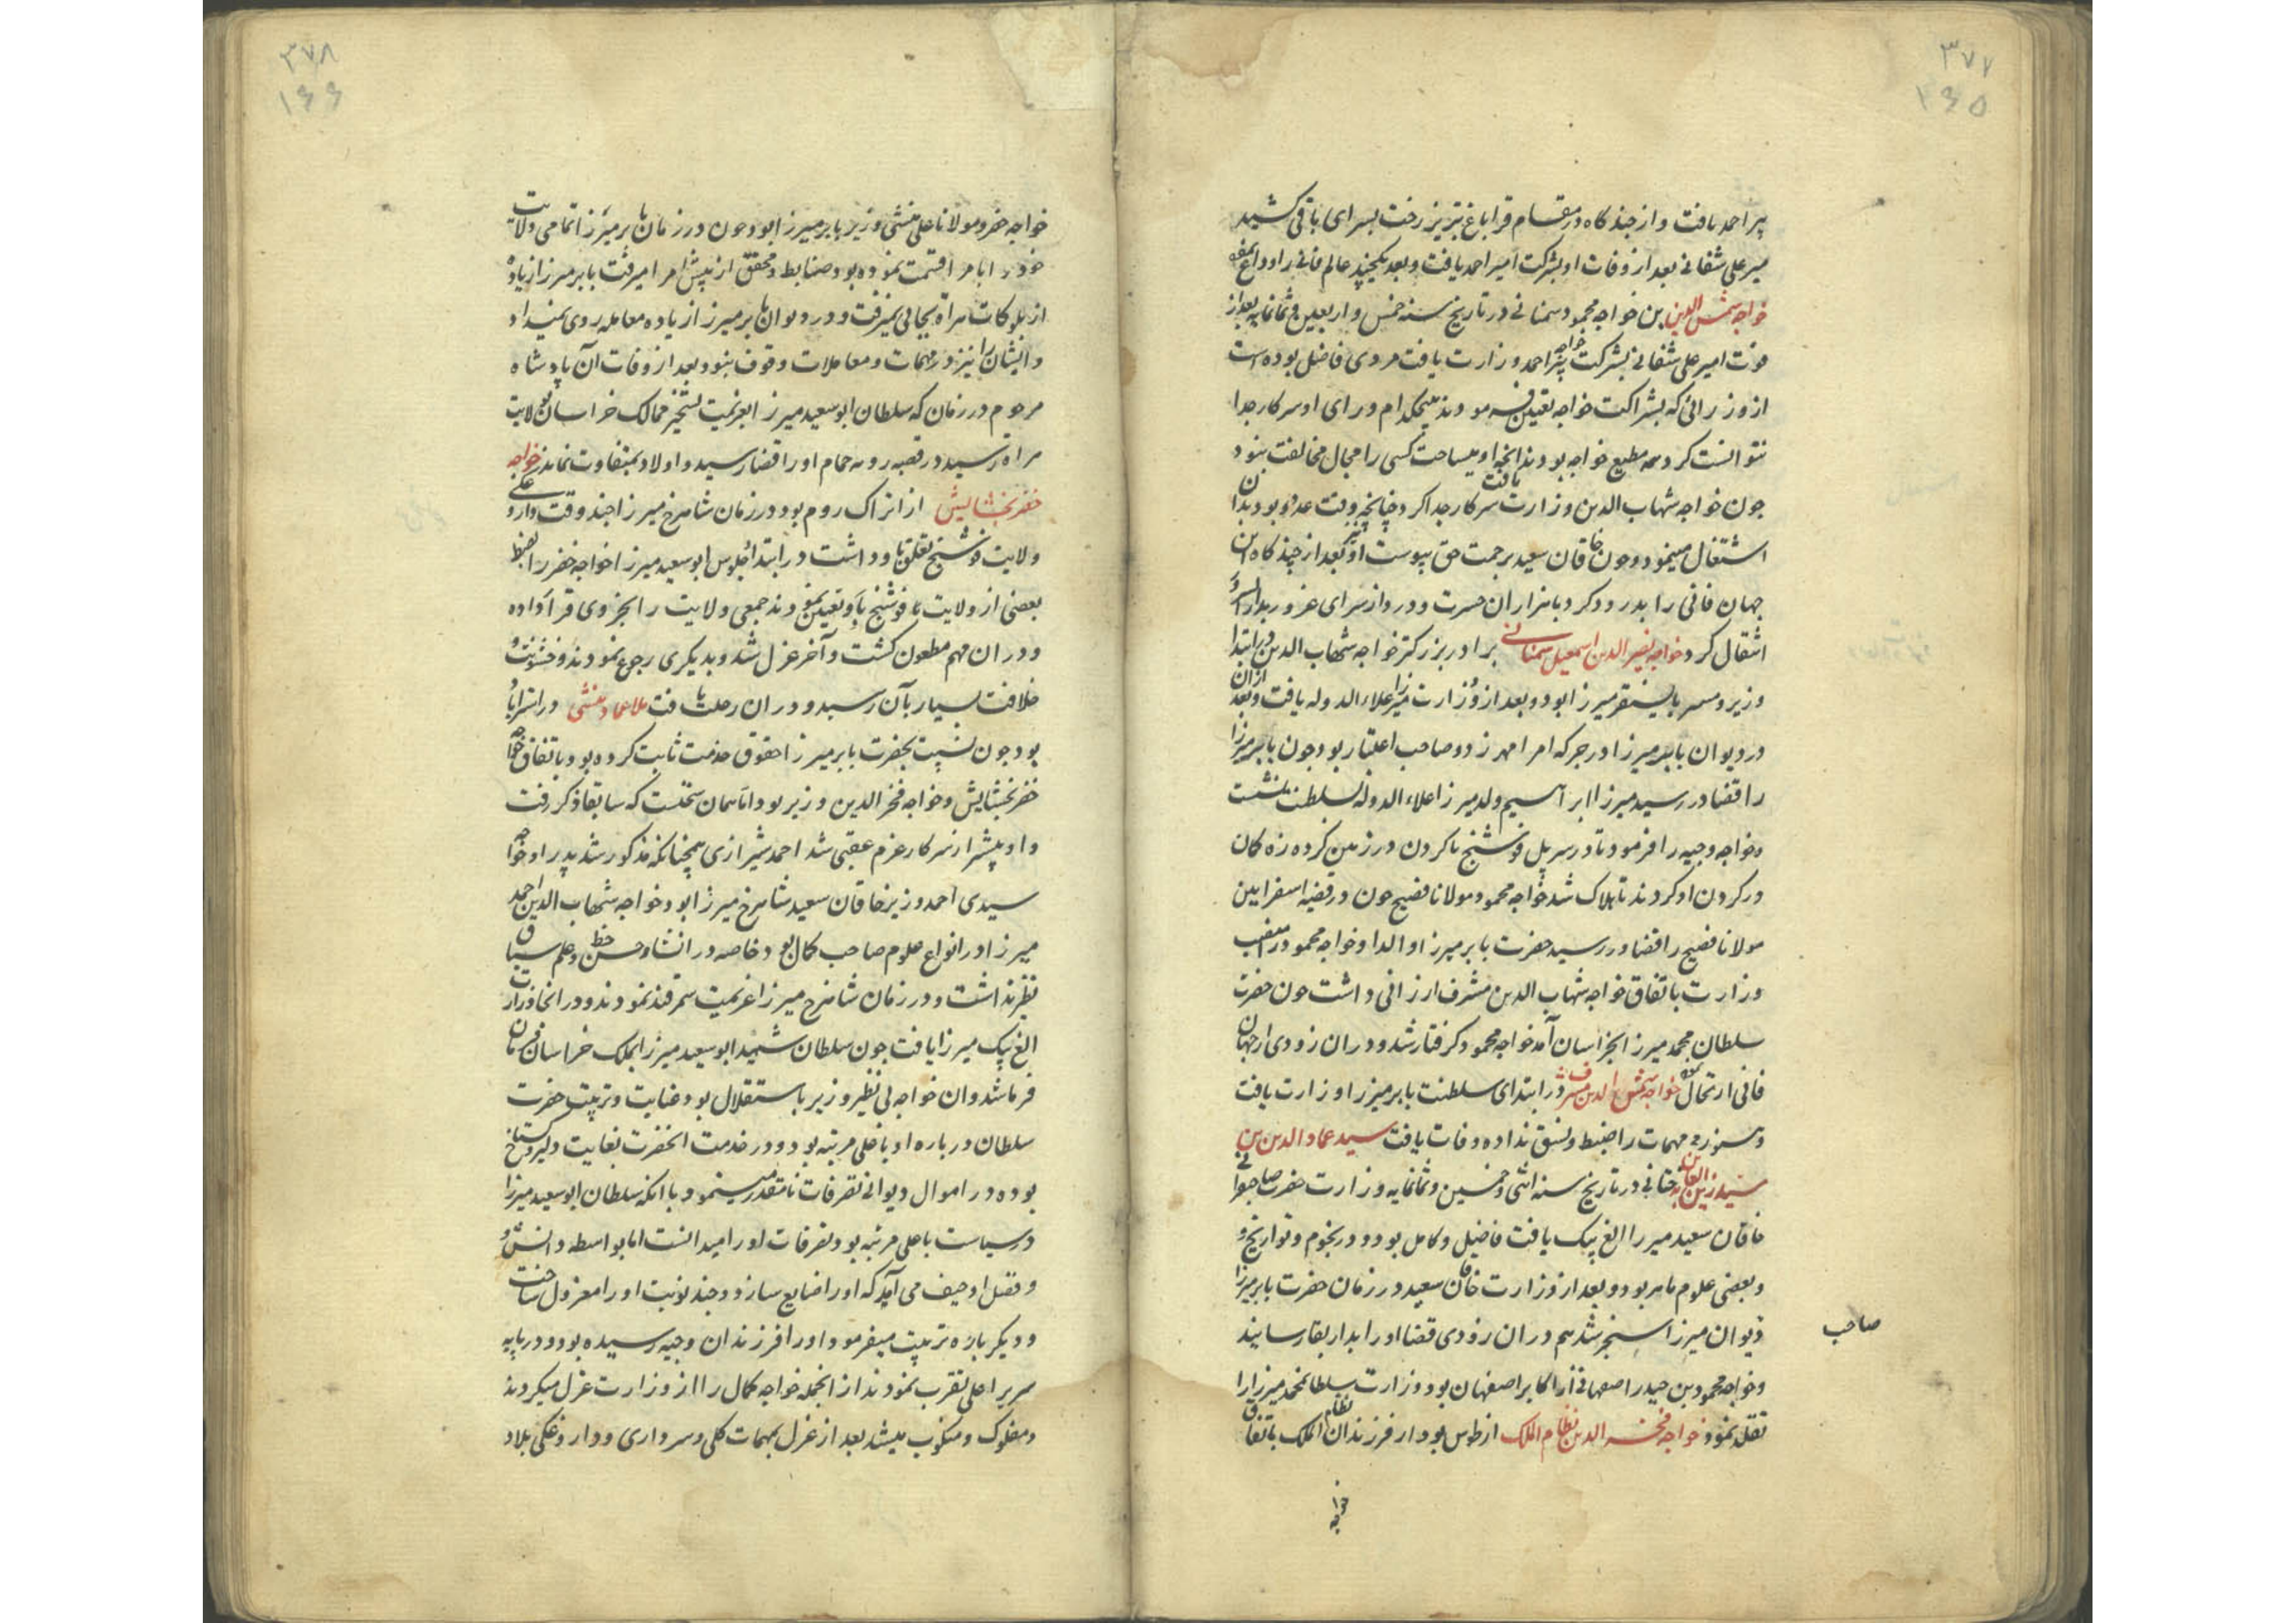 ۳۷۷
۱۶۵
پیر احمد یافت و از چند کاه در مقام قراباغ تبریز رخت بسرای باقی کشید
میر علی شقانی بعد از وفات او بشرکت امیر احمد یافت و بعد یکچند عالم فانی را وداع نمود
خواجه شمس الدین بن خواجه محمود سمنانی در تاریخ سنه خمس و اربعین و ثمانمایه بعد از
فوت امیر علی شقانی بشرکت خواجه پیر احمد وزارت یافت مردی فاضل بوده است
از وزرائی که بشراکت خواجه تعیین فرمودند هیچکدام ورای او سرکار جدا
نتوانست کرد همه مطیع خواجه بودند اکسی را مجال مخالفت نبود
چون خواجه شهاب الدین وزارت یافت سرکار جدا کرد چنانچه وقت عدو بود بدان
اشتغال مینمود و چون خاقان سعید برحمت حق پیوست او نیز بعد از چند کاه این
جهان فانی را بدرود کرد با هزاران حسرت و درد از سرای غرور بدار السرور
انتقال کرد خواجه نصیر الدین اسمعیل سمنانی برادر بزرکتر خواجه شهاب الدین در ابتدا
وزیر و بایسنقر میرزا بود و بعد از وزارت میرزا علاء الدوله یافت و بعد از ان
در دیوان بابر میرزا در جرکه امرا مهر زد و صاحب اعتبار بود چون بابر میرزا
را قضا در رسید میرزا ابراهیم ولد میرزا علاء الدوله بسلطنت نشست
و خواجه وجیه را فرمود تا در سر پل فوشنج تا کردن در زمین کرده زه کان
در کردن او کردند تا هلاک شد خواجه محمود مولانا فصیح چون در قضیه اسفراین
مولانا فصیح را قضا در رسید حضرت بابر میرزا والدا و خواجه محمود در منصب
وزارت باتفاق خواجه شهاب الدین مشرف ارزانی داشت چون حضرت
سلطان محمد میرزا بخراسان آمد خواجه محمود کرفتار شد و در ان زودی از جهان
فانی ارتحال نمود خواجه شمس الدین مشرف در ابتدای سلطنت بابر میرزا وزارت یافت
و هنوز مهمات را ضبط و نسق نداده وفات یافت سید عماد الدین بن
سید زین العابدین جنابی در تاریخ سنه اثنی و خمسین و ثمانمایه وزارت حضرت صاحبقرانی
خاقان سعید میرزا الغ بیک یافت فاضل و کامل بود و در نجوم و تواریخ و
و بعضی علوم ماهر بود و بعد از وزارت خاقان سعید در زمان حضرت بابر میرزا
صاحب
دیوان میرزا سنجر شد هم در ان زودی قضا او را بدار بقا رسانید
و خواجه محمود بن حیدر اصفهانی از اکابر اصفهان بود وزارت سلطان محمد میرزا را
تقلد نمود خواجه فخر الدین نظام الملک از طوس بود از فرزندان نظام الملک باتفاق
خواجه
۳۷۸
۱۶۶
خواجه خضر و مولانا علی منشی وزیر بابر میرزا بود و چون در زمان بابر میرزا تمامی ولایت
خود را بامرا قسمت نموده بود و ضابط و محقق از پیش امرا میرفت بابر میرزا زیاده
از بلوکات هراة بجائی نمیرفت و در دیوان بابر میرزا زیاده معامله روی نمیداد
و ایشان را نیز در مهمات و معاملات وقوف نبود و بعد از وفات آن پادشاه
مرحوم در زمان که سلطان ابو سعید میرزا بعزیمت تسخیر ممالک خراسان بولایت
هراة رسید در قصبه رویه حمام او را قضا رسید و اولاد نماند خواجه
خضر بخشایش از اتراک روم بود در زمان شاهرخ میرزا چند وقت داروغکی
ولایت فوشنج تعلق باو داشت در ابتدا جلوس ابو سعید میرزا خواجه خضر را بضبط
بعضی از ولایت فوشنج باو تعیین نمودند جمعی ولایت را بجزوی قرار داده
و در ان مهم مطعون کشت و آخر عزل شد و بدیکری رجوع نمودند و خشونت و
خلافت بسیار بآن رسید و در ان رحلت یافت ملا عماد منشی در استراباد
بود چون نسبت بحضرت بابر میرزا حقوق خدمت ثابت کرده بود باتفاق خواجه
خضر بخشایش و خواجه فخر الدین وزیر بود و که سابقا ذکر رفت
و او پیشتر از سرکار عزم عقبی شد احمد شیرازی همچنانکه مذکور شد پدر او خواجه
سیدی احمد وزیر خاقان سعید شاهرخ میرزا بود و خواجه شهاب الدین احمد
میرزا در انواع علوم صاحب کمال بود خاصه در انشا و حسن خط و علم سیاق
نظیر نداشت و در زمان شاهرخ میرزا عزیمت سمرقند نمودند و در انجا وزارت
الغ بیک میرزا یافت چون سلطان شهید ابو سعید میرزا بملک خراسان فرمان
فرما شد و ان خواجه بی نظیر وزیر باستقلال بود عنایت و تربیت حضرت
سلطان درباره او باعلی مرتبه بود و در خدمت انحضرت بغایت دلیر و کستاخ
بوده در اموال دیوانی تصرفات نا مقدر مینمود با انکه سلطان ابو سعید میرزا
در سیاست باعلی مرتبه بود و تصرفات او را میدانست اما بواسطه دانش و
و فضل او حیف می آمد که او را ضایع سازد و چند نوبت او را معزول ساخت
و دیکر باره تربیت میفرمود او را فرزندان وجیه رسیده بود و در پایه
سریر اعلی تقرب نمودند از انجمله خواجه کمال را از وزارت عزل میکردند
و مفلوک و منکوب میشد بعد از عزل بمهمات کلی و سرداری و داروغکی بلاد